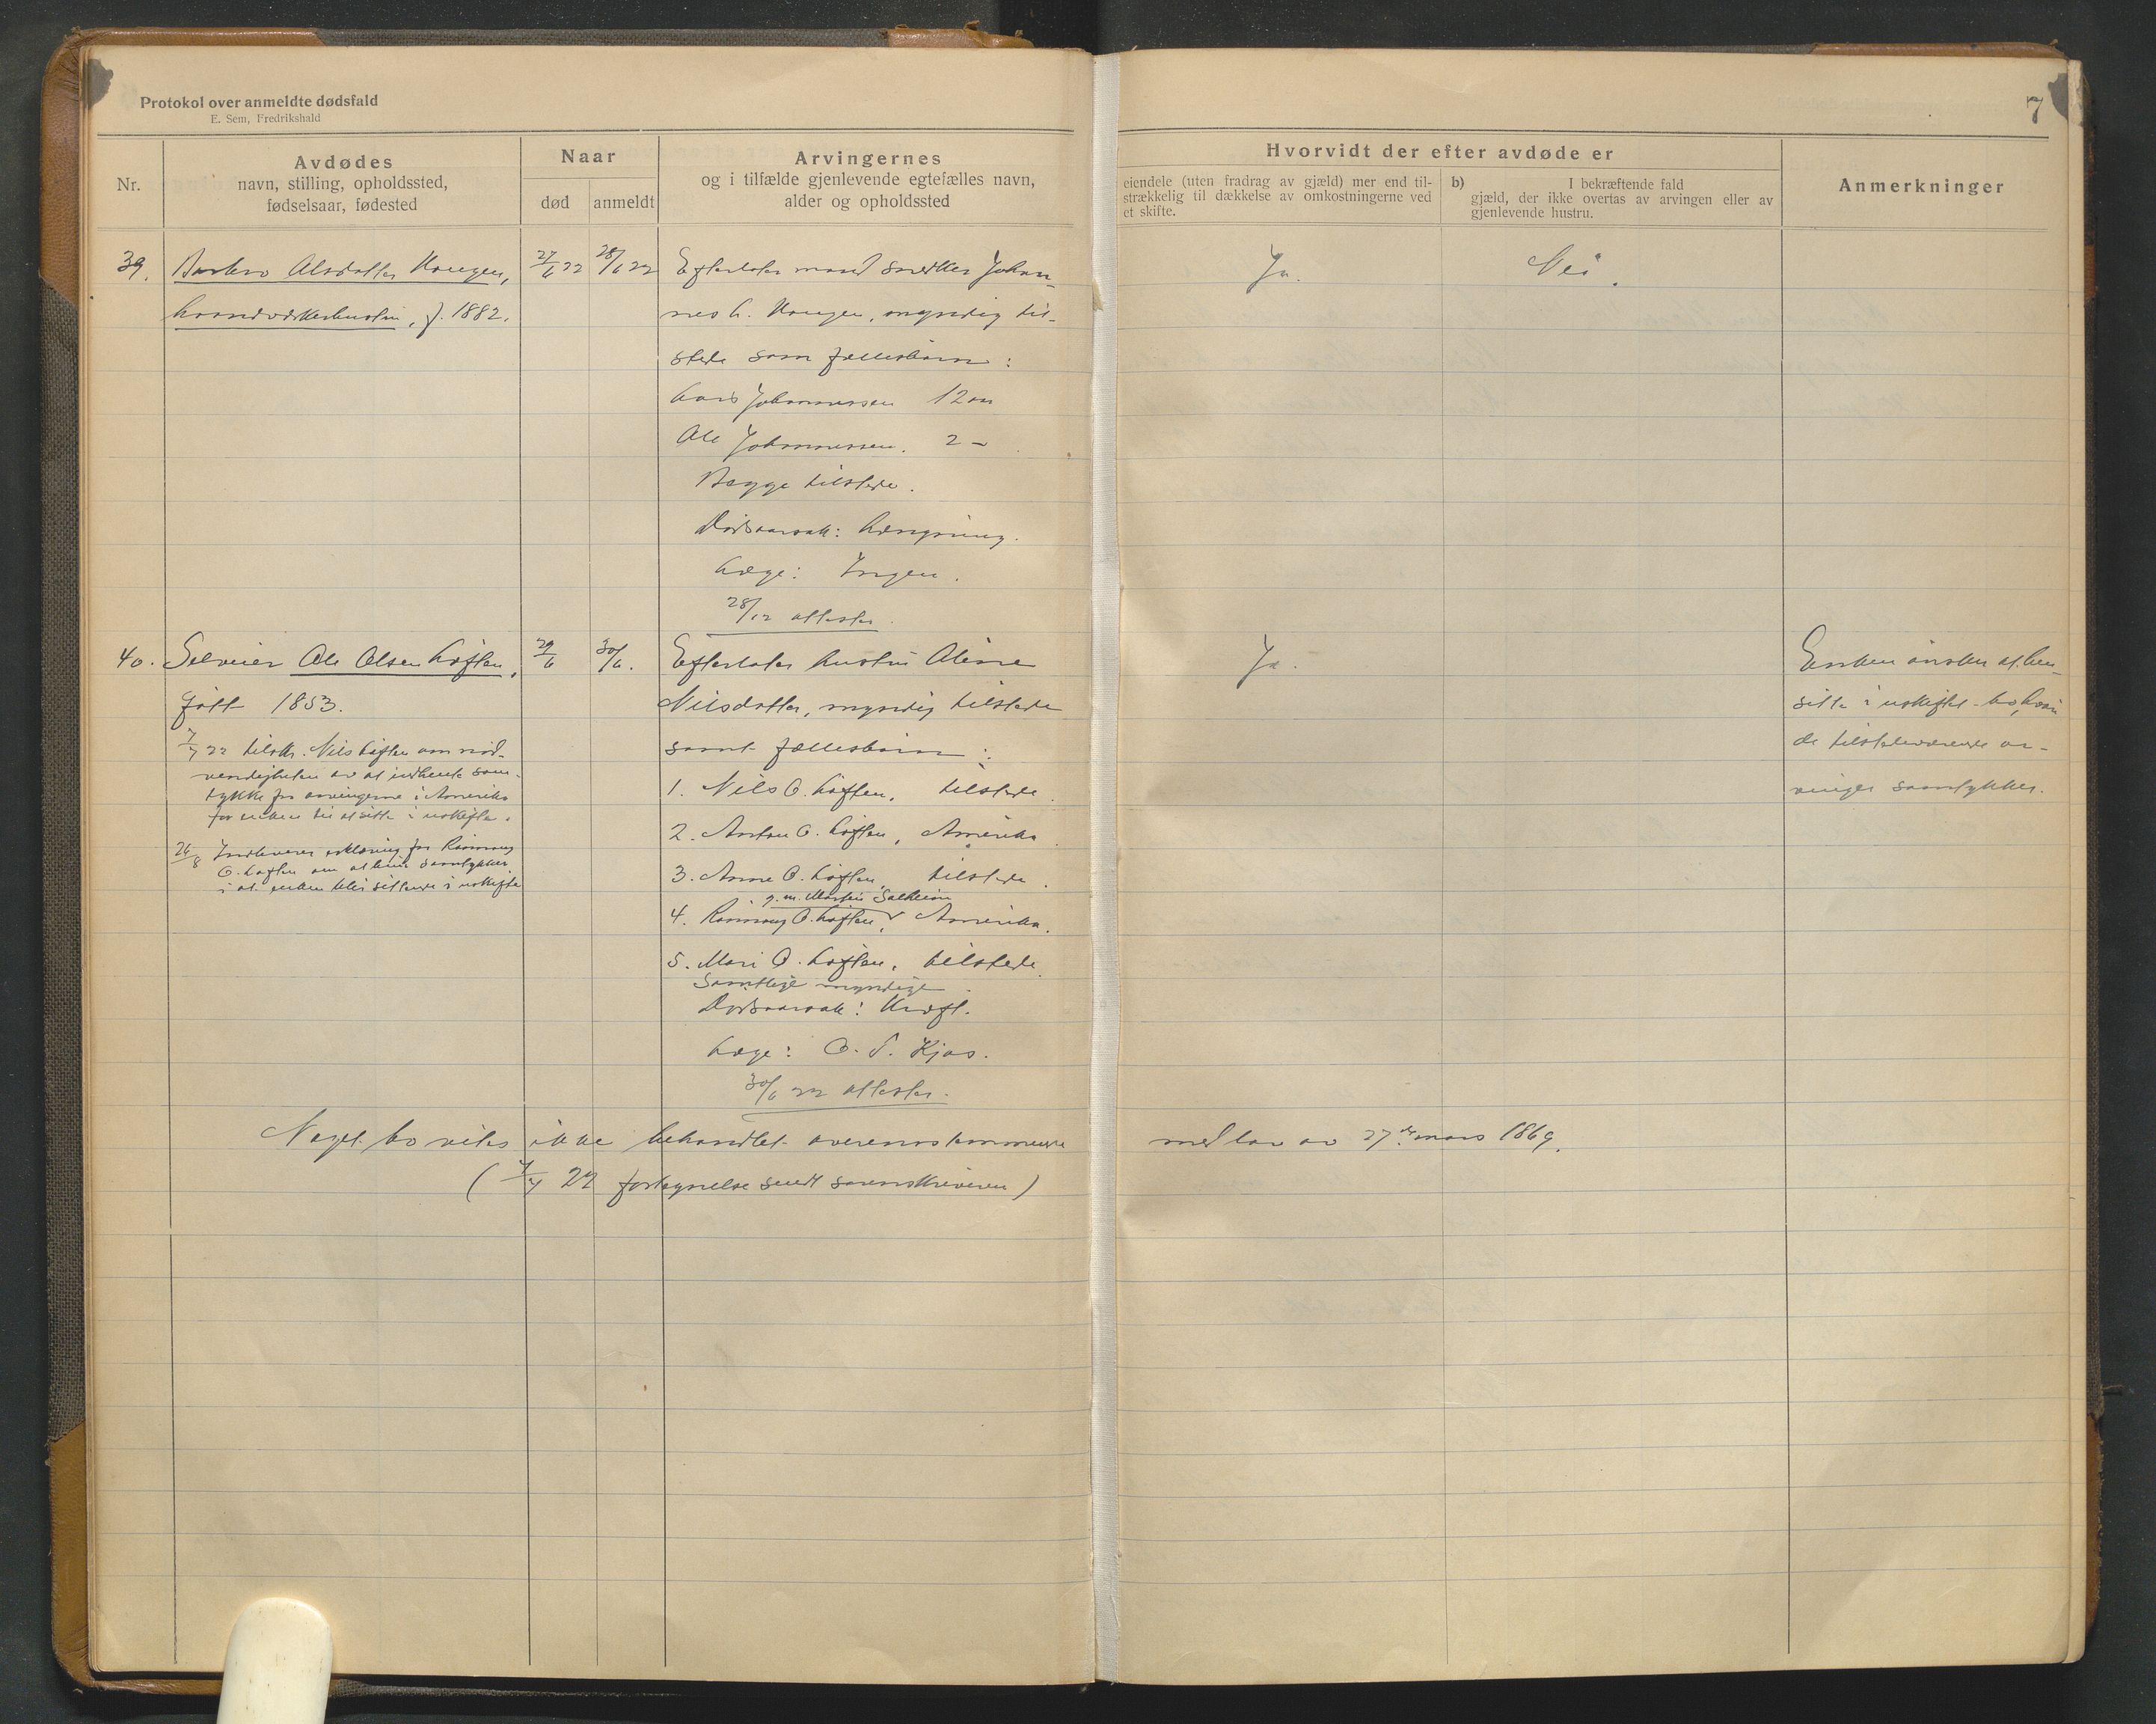 Protokol over anmeldte dødsfald
E. Sem, Fredrikshald
7
Nr.
Avdødes
navn, stilling, opholdssted,
fødselsaar, fødested
Naar
død
anmeldt
Arvingernes
og i tilfælde gjenlevende egtefælles navn,
alder og opholdssted
Hvorvidt der efter avdøde er
eiendele (uten fradrag av gjæld) mer end til-
strækkelig til dækkelse av omkostningerne ved
et skifte.
b) I bekræftende fald
gjæld, der ikke overtas av arvingen eller av
gjenlevende hustru.
Anmerkninger
39. Barbro Olsdatter Haugen,
haandverkerhustru, f. 1882.
27/6 22
28/6 22
Efterlater mand snedker Johan-
nes L. Haugen, myndig til-
stede samt fællesbarn:
Lars Johannessen 12 aar
Ole Johannessen. 2 -
Begge tilstede.
Dødsaarsak: Hængning.
Læge: Ingen.
28/12 attester.
Ja.
Nei.
40. Selveier Ole Olsen Loften,
født 1853.
7/7 22 tilsk. Nils Loften om nød-
vendigheten av at indhente sam-
tykke fra arvingerne i Amerika
for enken til at sitte i uskifte.
26/8 Indleverer erklæring fra Rønnaug
O. Loften om at hun samtykker
i at enken blir sittende i uskifte
29/6
30/6.
Efterlater hustru Oline
Nilsdatter, myndig tilstede
samt fællesbarn:
1. Nils O. Loften, tilstede.
2. Anton O. Loften, Amerika.
3. Anne O. Loften, tilstede.
g. m. Martin Solheim
4. Rønnaug O. Loften, Amerika.
5. Mari O. Loften, tilstede.
Samtlige myndige.
Dødsaarsak: Kræft.
Læge: O. S. Kjos.
30/6 22 attester.
Ja.
Enken ønsker at hen-
sitte i uskiftet bo, hvori
de tilstedeværende ar-
vinger samtykker.
Noget bo vites ikke behandlet overensstemmende med lov av 27de mars 1869.
(7/7 22 fortegnelse sendt sorenskriveren)